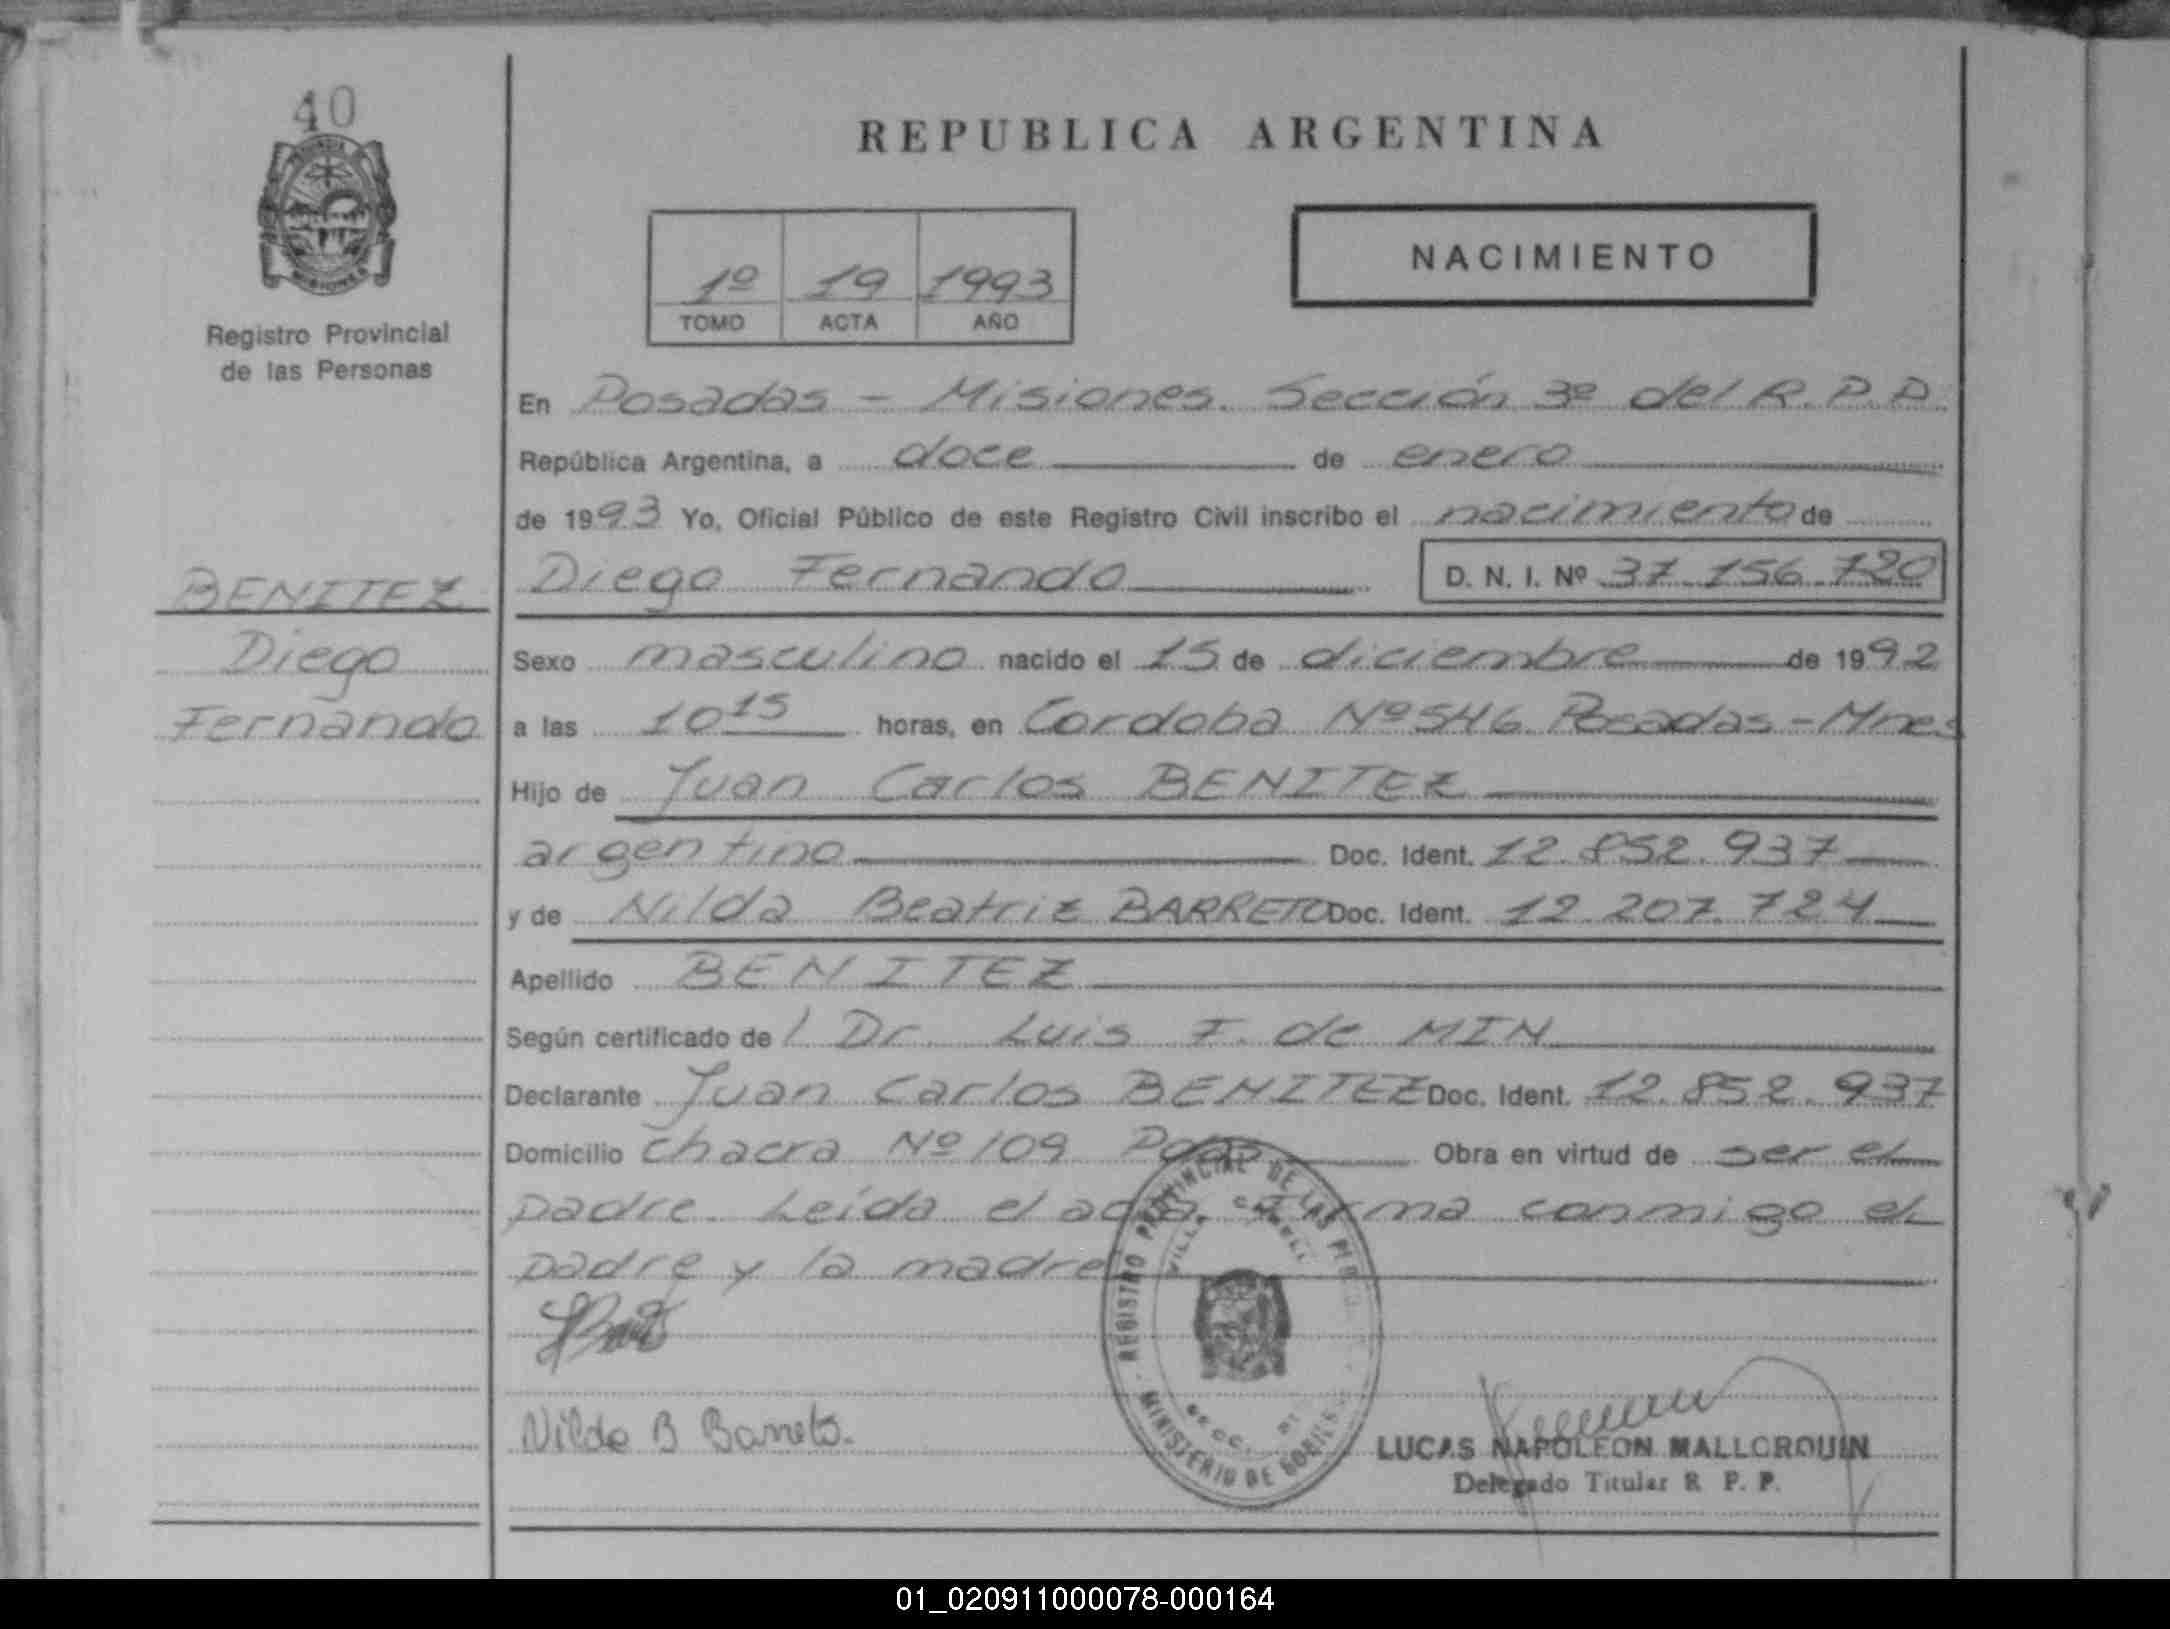 40
Registro Provincial
de las Personas
BENITEZ
Diego
Fernando
REPUBLICA ARGENTINA
1º 19 1993
TOMO ACTA AÑO
NACIMIENTO
En Posadas - Misiones. Sección 3º del R.P.P.
República Argentina, a doce de enero
de 1993 Yo, Oficial Público de este Registro Civil inscribo el nacimiento de
Diego Fernando D. N. I. Nº 37.156.720
Sexo masculino nacido el 15 de diciembre de 1992
a las 10 15 horas, en Cordoba Nº 546 Posadas - Mnes
Hijo de Juan Carlos BENITEZ
argentino Doc. Ident. 12.852.937
y de Nilda Beatriz BARRETO Doc. Ident. 12.207.724
Apellido BENITEZ
Según certificado de l Dr. Luis F. de MIN
Declarante Juan Carlos BENITEZ Doc. Ident. 12.852.937
Domicilio Chacra Nº 109 Pdas Obra en virtud de ser el
padre. Leída el acta, Firma conmigo el
padre y la madre
REGISTRO PROVINCIAL DE LAS
VILLA CABELL
SECC.
MINISTERIO DE GOBIER
Nilda B Barreto.
LUCAS NAPOLEON MALLORQUIN
Delegado Titular R. P. P.
01_020911000078-000164